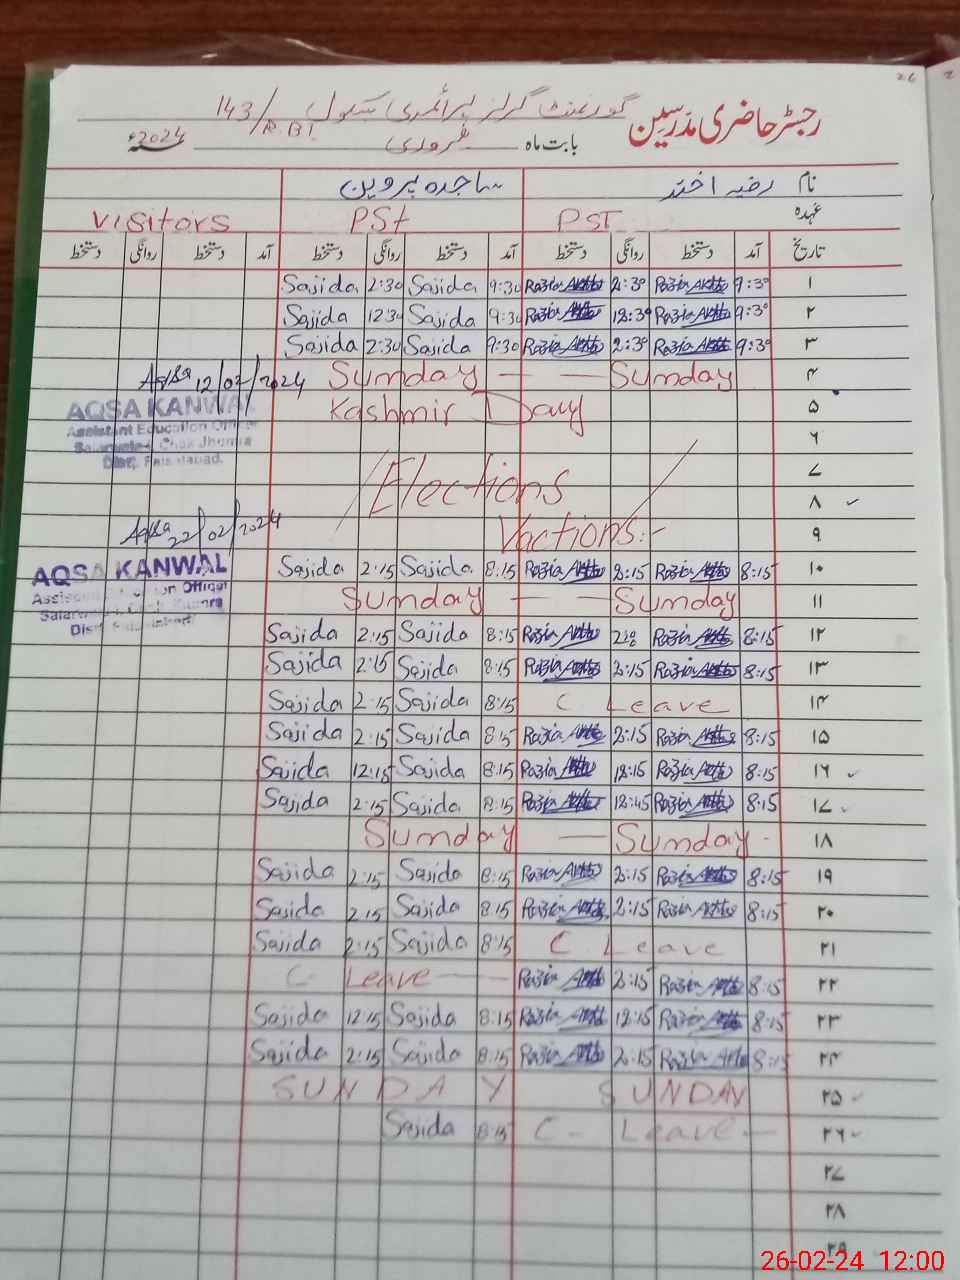 گورنمنٹ گرلز پرائمری سکول 143/R.B!
رجسٹر حاضری مدرسین
بابت ماہ فروری سنہ 2024ء
نام رضیہ اختر ساجدہ پروین
عہدہ PST PSt visitors
تاریخ آمد دستخط روانگی دستخط آمد دستخط روانگی دستخط آمد دستخط روانگی دستخط
۱ 9:30 Razia 2:30 Razia 9:30 Sajida 2:30 Sajida
۲ 9:30 Razia 12:30 Razia 9:30 Sajida 12:30 Sajida
۳ 9:30 Razia 2:30 Razia 9:30 Sajida 2:30 Sajida
۴ Sunday — — Sunday
Aqsa 12/02/2024
AQSA KANWAL
Assistant Education Officer
Distt. Faisalabad.
۵ Kashmir Day
۶
۷ Elections
۸
۹ Vactions:-
Aqsa 22/02/2024
AQSA KANWAL
۱۰ 8:15 Razia 2:15 Razia 8:15 Sajida 2:15 Sajida
۱۱ Sunday — — Sunday
۱۲ 8:15 Razia Razia 8:15 Sajida 2:15 Sajida
۱۳ 8:15 Razia 2:15 Razia 8:15 Sajida 2:15 Sajida
۱۴ C Leave 8:15 Sajida 2:15 Sajida
۱۵ 8:15 Razia 2:15 Razia 8:15 Sajida 2:15 Sajida
۱۶ 8:15 Razia 12:15 Razia 8:15 Sajida 12:15 Sajida
۱۷ 8:15 Razia 12:45 Razia 8:15 Sajida 2:15 Sajida
۱۸ Sunday — Sunday
۱۹ 8:15 Razia 2:15 Razia 8:15 Sajida 2:15 Sajida
۲۰ 8:15 Razia 2:15 Razia 8:15 Sajida 2:15 Sajida
۲۱ C Leave 8:15 Sajida 2:15 Sajida
۲۲ 8:15 Razia 2:15 Razia C Leave
۲۳ 8:15 Razia 12:15 Razia 8:15 Sajida 12:15 Sajida
۲۴ 8:15 Razia 2:15 Razia 8:15 Sajida 2:15 Sajida
۲۵ SUNDAY SUNDAY
۲۶ C - Leave — 8:15 Sajida
۲۷
۲۸
۲۹
26-02-24 12:00